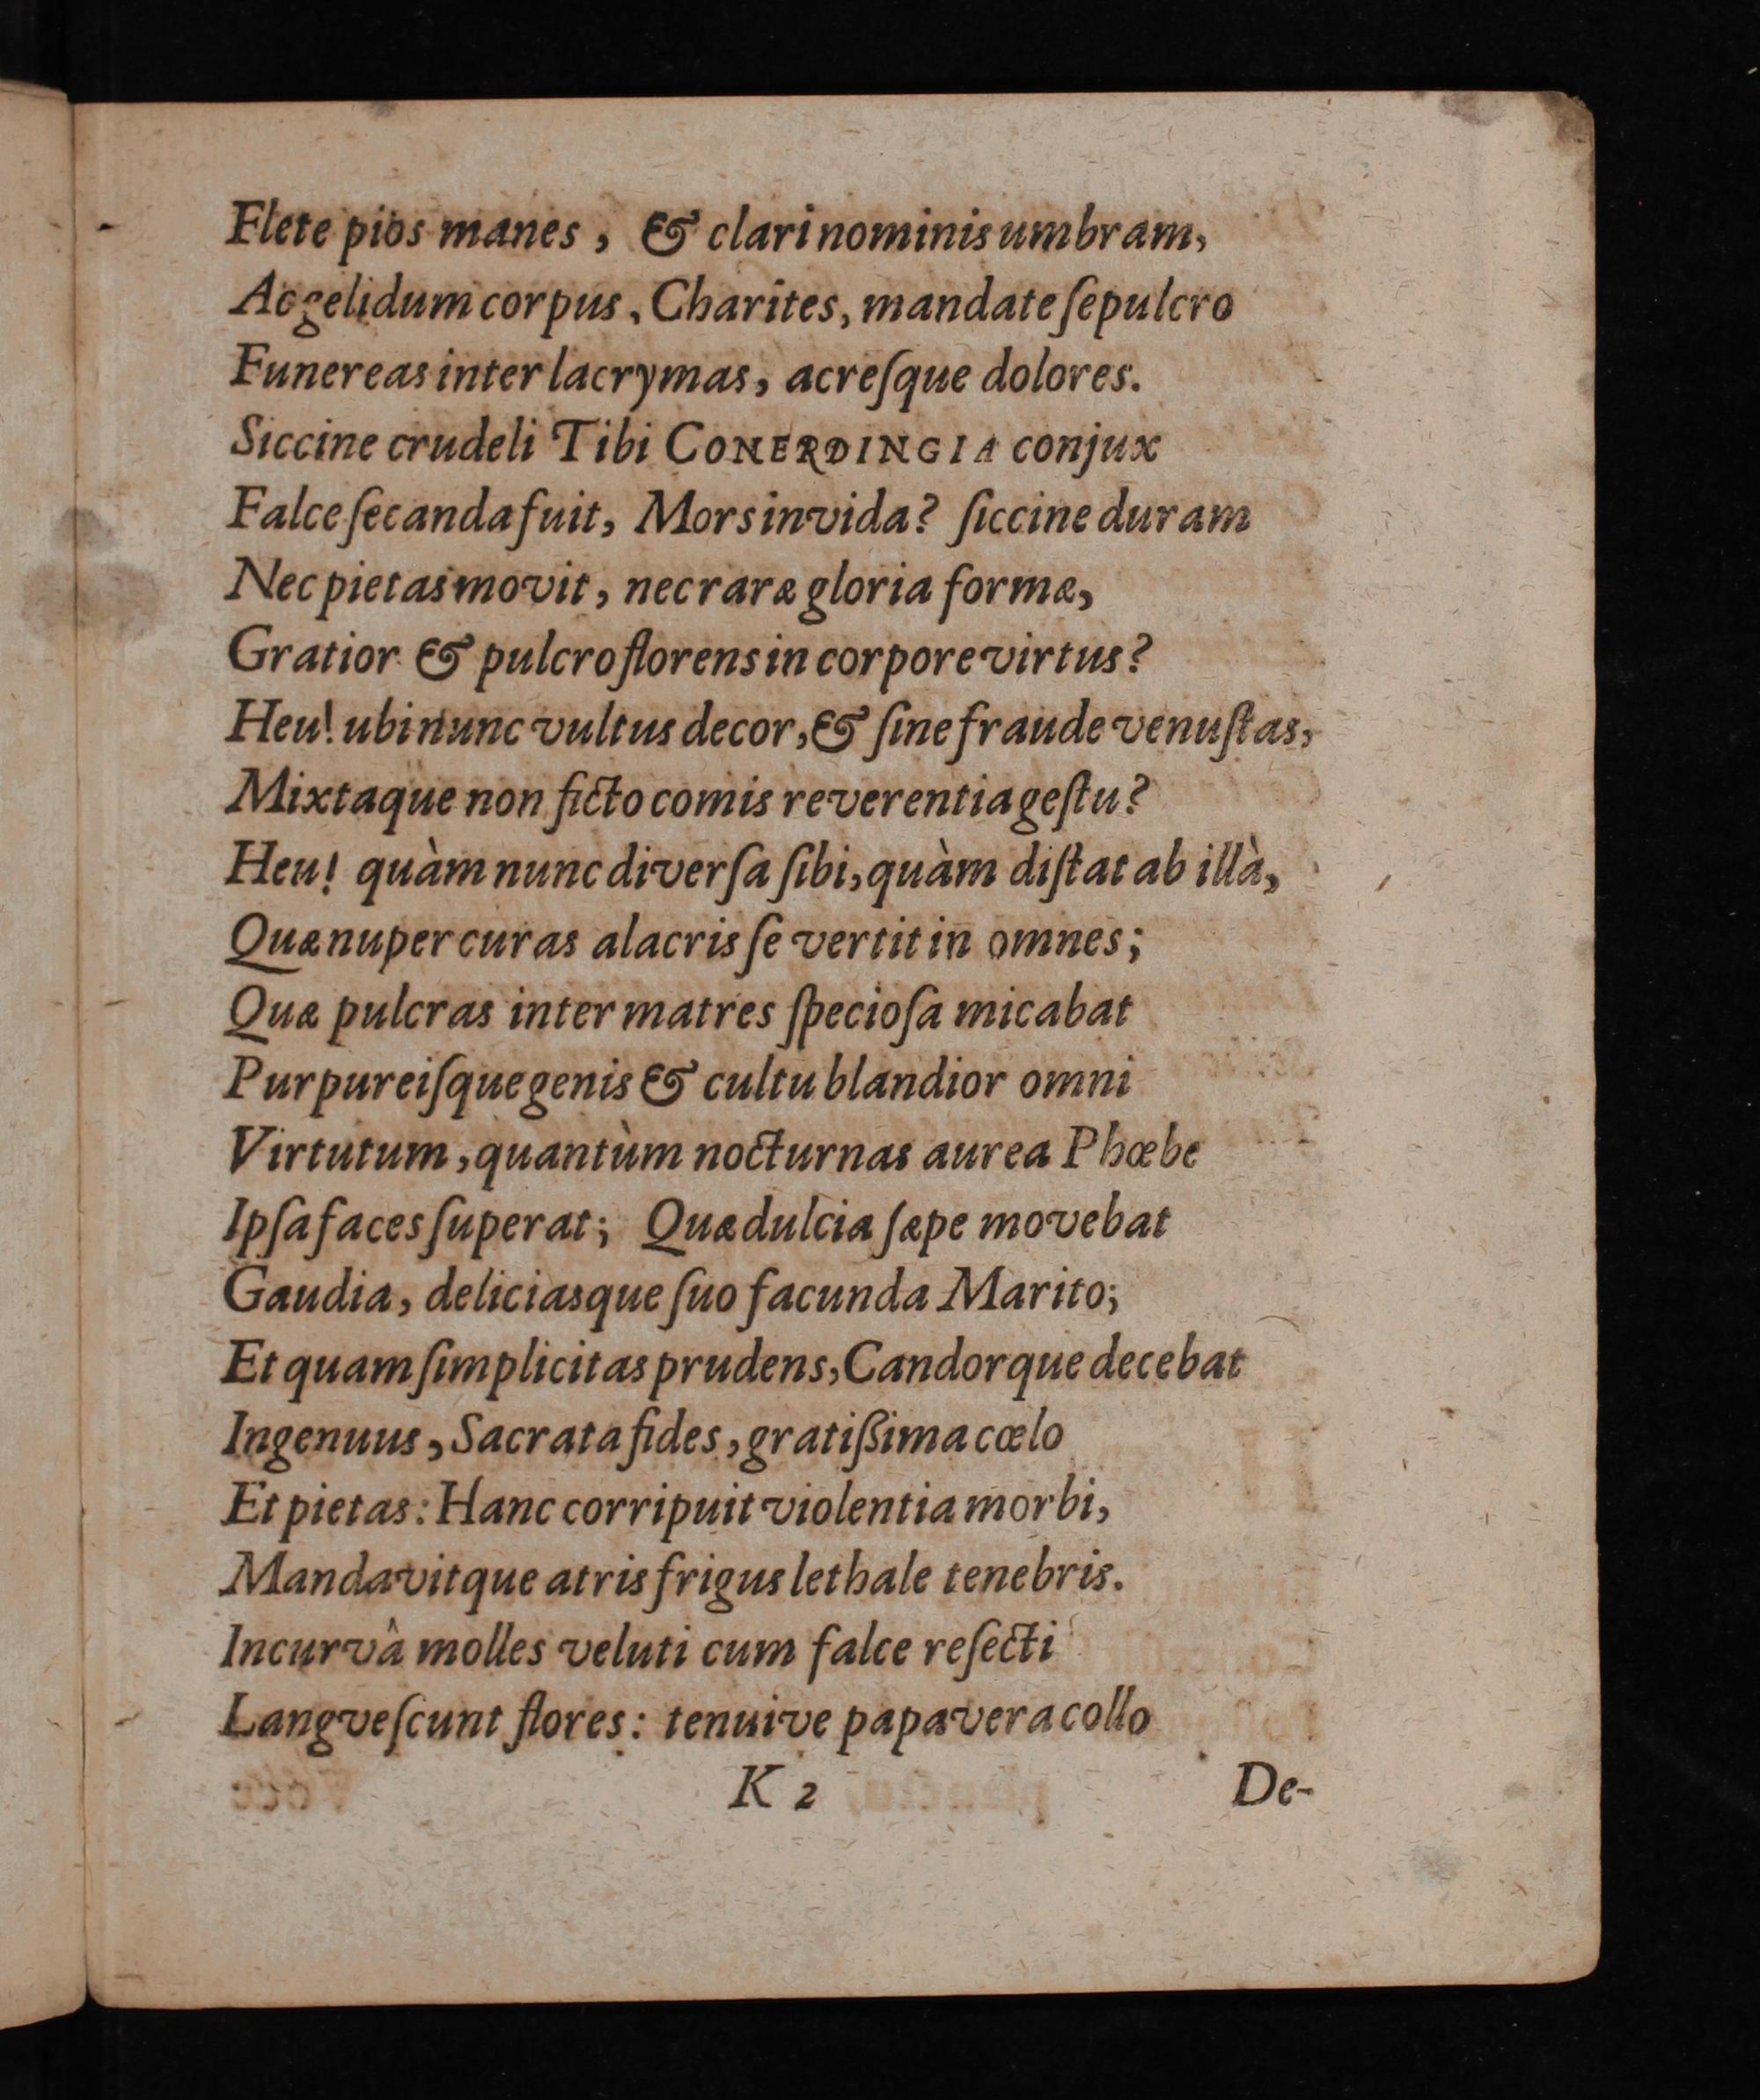 Flete pios manes, & clari nominis umbram,
Ac gelidum corpus, Charites, mandate ſepulcro
Funereas inter lacrymas, acreſque dolores.
Siccine crudeli Tibi CONERDINGIA conjux
Falce ſecanda fuit, Mors invida? ſiccine duram
Nec pietas movit, nec raræ gloria formæ,
Gratior & pulcro florens in corpore virtus?
Heu! ubi nunc vultus decor, & ſine fraude venuſtas,
Mixtaque non ficto comis reverentia geſtu?
Heu! quàm nunc diverſa ſibi, quàm diſtat ab illà,
Quæ nuper curas alacris ſe vertit in omnes;
Quæ pulcras inter matres ſpecioſa micabat
Purpureiſque genis & cultu blandior omni
Virtutum, quantùm nocturnas aurea Phœbe
Ipſa faces ſuperat; Quæ dulcia ſæpe movebat
Gaudia, deliciasque ſuo facunda Marito;
Et quam ſimplicitas prudens, Candorque decebat
Ingenuus, Sacrata fides, gratißima cœlo
Et pietas: Hanc corripuit violentia morbi,
Mandavitque atris frigus lethale tenebris.
Incurvâ molles veluti cum falce reſecti
Langveſcunt flores: tenuive papavera collo
K 2
De-